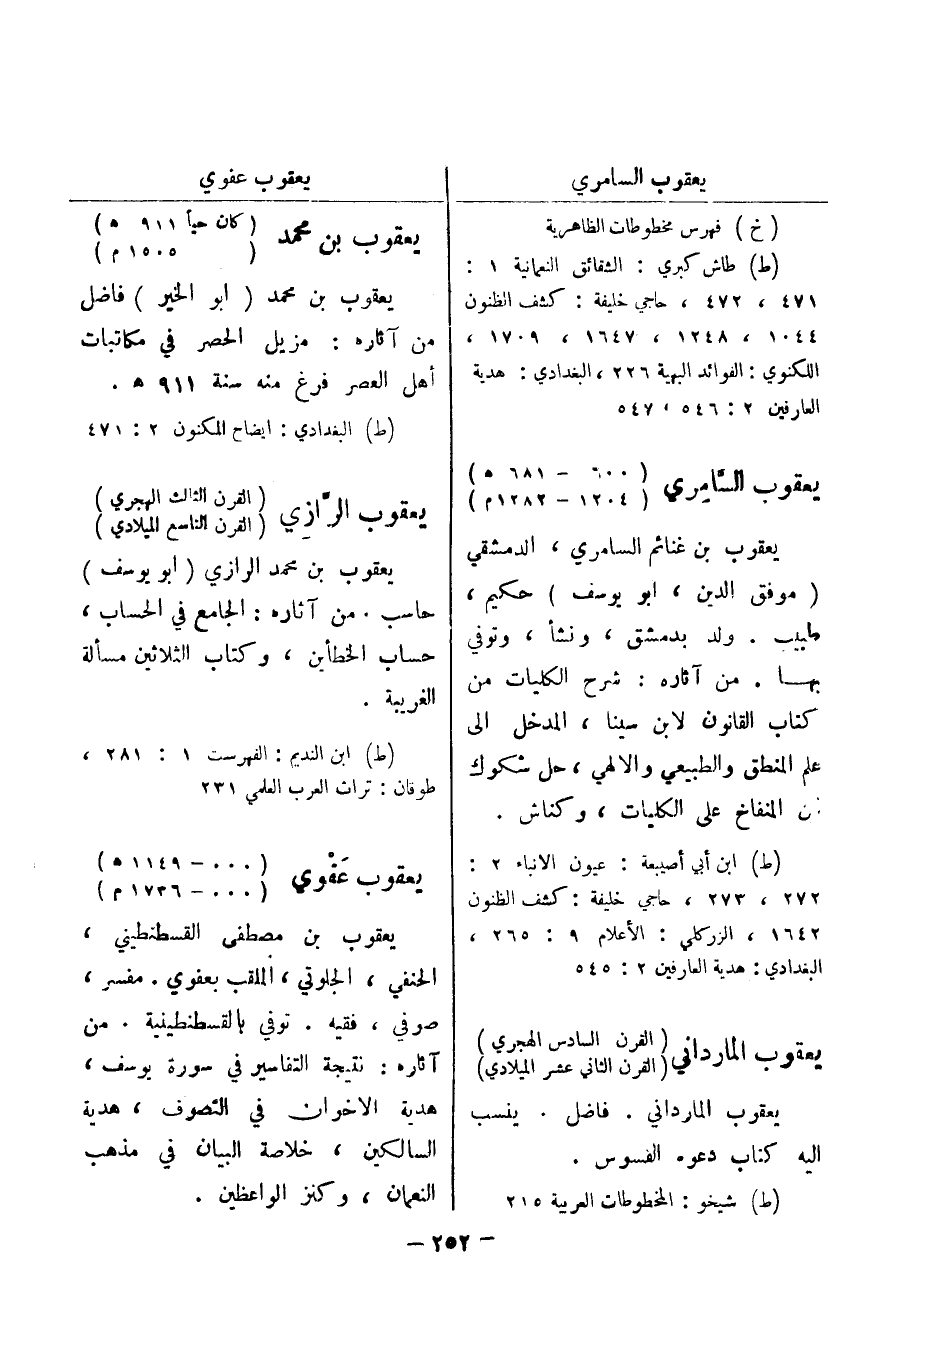 يعقوب السامري
( خ ) فهرس مخطوطات الظاهرية
(ط) طاش كبري : الشقائق النعمانية ١ :
٤٧١ ، ٤٧٢ ، حاجي خليفة : كشف الظنون
١٠٤٤ ، ١٢٤٨ ، ١٦٤٧ ، ١٧٠٩ ،
اللكنوي : الفوائد البهية ٢٢٦ ، البغدادي : هدية
العارفين ٢ : ٥٤٦ ، ٥٤٧
يعقوب السَّامِري ( ٦٠٠ – ٦٨١ ه )
( ١٢٠٤ – ١٢٨٢ م )
يعقوب بن غنائم السامري ، الدمشقي
( موفق الدين ، ابو يوسف ) حكيم ،
طبيب . ولد بدمشق ، ونشأ ، وتوفي
بهــا . من آثاره : شرح الكليات من
كتاب القانون لابن سينا ، المدخل الى
علم المنطق والطبيعي والالهي ، حل شكوك
ابن المنفاخ على الكليات ، وكناش .
(ط) ابن أبي أصيبعة : عيون الانباء ٢ :
٢٧٢ ، ٢٧٣ ، حاجي خليفة : كشف الظنون
١٦٤٢ ، الزركلي : الأعلام ٩ : ٢٦٥ ،
البغدادي : هدية العارفين ٢ : ٥٤٥
يعقوب المارداني ( القرن السادس الهجري )
( القرن الثاني عشر الميلادي )
يعقوب المارداني . فاضل . ينسب
اليه كتاب دعوه القسوس .
(ط) شيخو : المخطوطات العربية ٢١٥
يعقوب عفوي
يعقوب بن محمد ( كان حياً ٩١١ ه )
( ١٥٠٥ م )
يعقوب بن محمد ( ابو الخير ) فاضل
من آثاره : مزيل الحصر في مكاتبات
أهل العصر فرغ منه سنة ٩١١ ه .
(ط) البغدادي : ايضاح المكنون ٢ : ٤٧١
يعقوب الرَّازي ( القرن الثالث الهجري )
( القرن التاسع الميلادي )
يعقوب بن محمد الرازي ( ابو يوسف )
حاسب . من آثاره : الجامع في الحساب ،
حساب الخطأين ، وكتاب الثلاثين مسألة
الغريبة .
(ط) ابن النديم : الفهرست ١ : ٢٨١ ،
طوقان : تراث العرب العلمي ٢٣١
يعقوب عَفْوي ( ٠٠٠ – ١١٤٩ ه )
( ٠٠٠ – ١٧٣٦ م )
يعقوب بن مصطفى القسطنطيني ،
الحنفي ، الجلوتي ، الملقب بعفوي . مفسر ،
صوفي ، فقيه . توفي بالقسطنطينية . من
آثاره : نتيجة التفاسير في سورة يوسف ،
هدية الاخوان في التصوف ، هدية
السالكين ، خلاصة البيان في مذهب
النعمان ، وكنز الواعظين .
– ٢٥٢ –